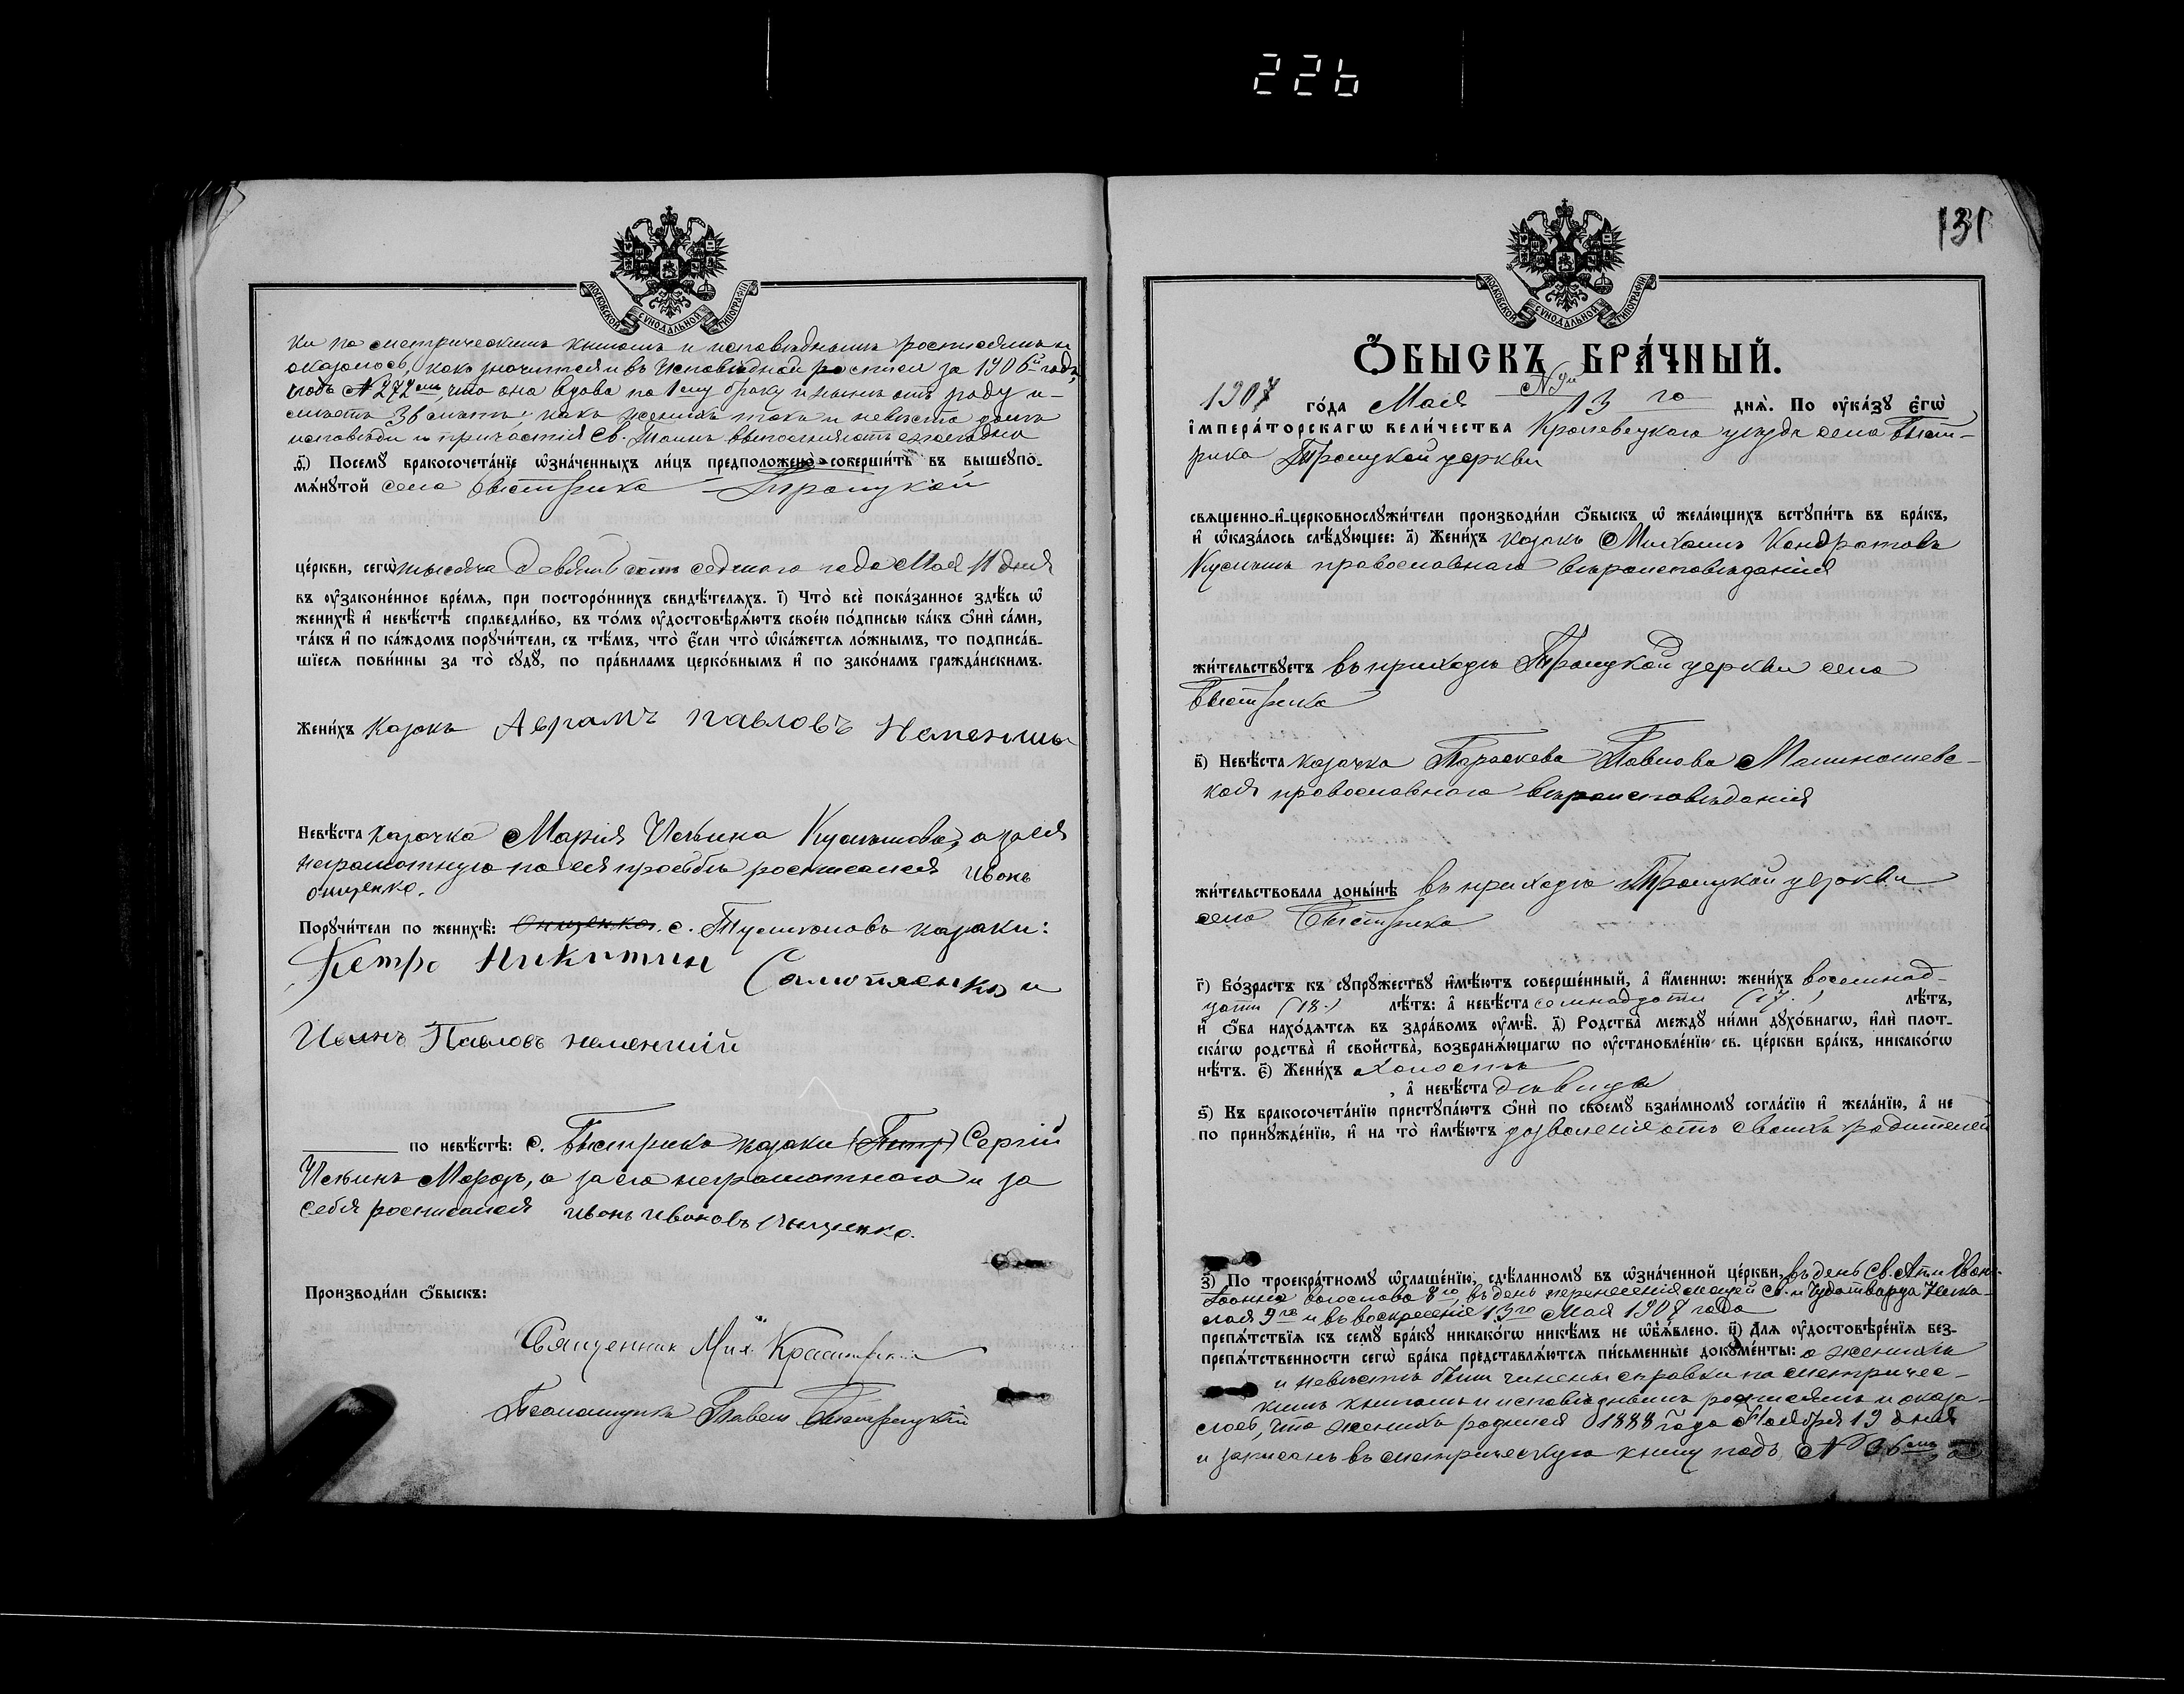 226
МОСКОВСКОЙ СѴНОДАЛЬНОЙ ТИПОГРАФІИ
ки по метрическимъ книгамъ и исповѣднымъ росписямъ и
оказалось, какъ значится и въ исповѣдной росписи за 1906й годъ,
подъ № 272емъ, что она вдова по 1му браку и нынѣ отъ роду и-
мѣетъ лѣтъ; какъ женихъ такъ и невѣста долгъ
исповѣди и причастія Св. Таинъ выполняютъ ежегодно
ѳ҃) Посемꙋ̀ бракосочета́нїе ѡ҆зна́ченныхъ ли́цъ предположено̀ соверши́ть въ вышеꙋпо-
мѧ́нꙋтой села Быстрика Троицкой
це́ркви, сегѡ̀ тысяча девятьсотъ седьмого года Мая 11 дня
въ ᲂу҆зако́не́нное вре́мѧ, при посторо́ннихъ свидѣ́телѧхъ. і҃) Что̀ всѐ пока́занное здѣ́сь ѡ҆
женихѣ̀ и҆ невѣ́стѣ справедли́во, въ то́мъ ᲂу҆достовѣрѧ́ютъ свое́ю по́дписью ка́къ ѻ҆нѝ са́ми,
та́къ и҆ по ка́ждомъ порꙋчи́тели, съ тѣ́мъ, что̀ є҆́сли что̀ ѡ҆ка́жетсѧ ло́жнымъ, то подписа́в-
шїесѧ пови́нны за то̀ сꙋдꙋ̀, по пра́виламъ церко́внымъ и҆ по зако́намъ гражда́нскимъ.
Жени́хъ казакъ Аврамъ Павловъ
Невѣ́ста казачка Марія Ильина а за ея
неграмотную по ея просьбѣ росписался Иванъ
Онищенко.
Порꙋчи́тели по женихѣ̀: Онищенко. с. казаки:
Петро Никитин и
Иванъ Павловъ
по невѣ́стѣ: с. Быстрика казаки (Петр) Сергій
Ильинъ а за его неграмотного и за
себя росписался Иванъ Ивановъ Онищенко.
Производи́ли ѻ҆́быскъ:
Священник
Псаломщикъ Павелъ
131
МОСКОВСКОЙ СѴНОДАЛЬНОЙ ТИПОГРАФІИ
Ѻ҆́БЫСКЪ БРА́ЧНЫЙ.
№ 9й
1907 го́да Мая 13 го днѧ̀. По ᲂу҆ка́зꙋ є҆гѡ̀
і҆мпера́торскагѡ вели́чества Кролевецкаго уѣзда села Быст-
рика Троицкой церкви
свѧщенно-и҆-церковнослꙋжи́тели производи́ли ѻ҆́быскъ ѡ҆ жела́ющихъ встꙋпи́ть въ бра́къ,
и҆ ѡ҆каза́лось слѣ́дꙋющее: а҃) Жени́хъ казакъ Михаилъ Кондратовъ
православнаго вѣроисповѣданія
жи́тельствꙋетъ въ приходѣ Троицкой церкви села
Быстрика
в҃) Невѣ́ста казачка Параскева Павлова Малиношевс-
кая православнаго вѣроисповѣданія
жи́тельствовала доны́нѣ въ приходѣ Троицкой церкви
села Быстрика
г҃) Во́зрастъ къ сꙋпрꙋ́жествꙋ и҆мѣ́ютъ соверше́нный, а҆ и҆́меннѡ: жени́хъ восемнад-
цати (18.) лѣ́тъ: а҆ невѣ́ста семнадцати (17.) лѣ́тъ,
и҆ ѻ҆́ба нахо́дѧтсѧ въ здра́вомъ ᲂу҆мѣ̀. д҃) Родства̀ междꙋ̀ ни́ми дꙋхо́внагѡ, и҆лѝ пло́т-
скагѡ родства̀ и҆ сво́йства̀, возбранѧ́ющагѡ по ᲂу҆становле́нїю св. це́ркви бра́къ, никако́гѡ
нѣ́тъ. є҃) Жени́хъ холостъ
, а҆ невѣ́ста дѣвица
ѕ҃) Къ бракосочета́нїю пристꙋпа́ютъ ѻ҆нѝ по своемꙋ̀ взаи́мномꙋ согла́сїю и҆ жела́нїю, а҆ не
по принꙋжде́нїю, и҆ на то̀ и҆мѣ́ютъ дозволеніе отъ своихъ родителей
з҃) По троекра́тномꙋ ѡ҆глаше́нїю, сдѣ́ланномꙋ въ ѡ҆зна́ченной це́ркви, въ день Св. Ап. и
Іоанна Богослова 8го, въ день перенесенія мощей Св. и Чудотворца Нико-
лая 9го и въ воскресеніе 13го Мая 1907 года
препѧ́тствїѧ къ семꙋ̀ бра́кꙋ никако́гѡ никѣ́мъ не ѡ҆б̾ѧ́влено. и҃) Длѧ ᲂу҆достовѣре́нїѧ без-
препѧ́тственности сегѡ̀ бра́ка представлѧ́ютсѧ пи́сьменные докꙋме́нты: о женихѣ
и невѣстѣ были чинены справки по метричес-
кимъ книгамъ и исповѣднымъ росписямъ и оказа-
лось, что женихъ родился 1888 года Ноября 19 дня
и записанъ въ метрическую книгу подъ № 36емъ